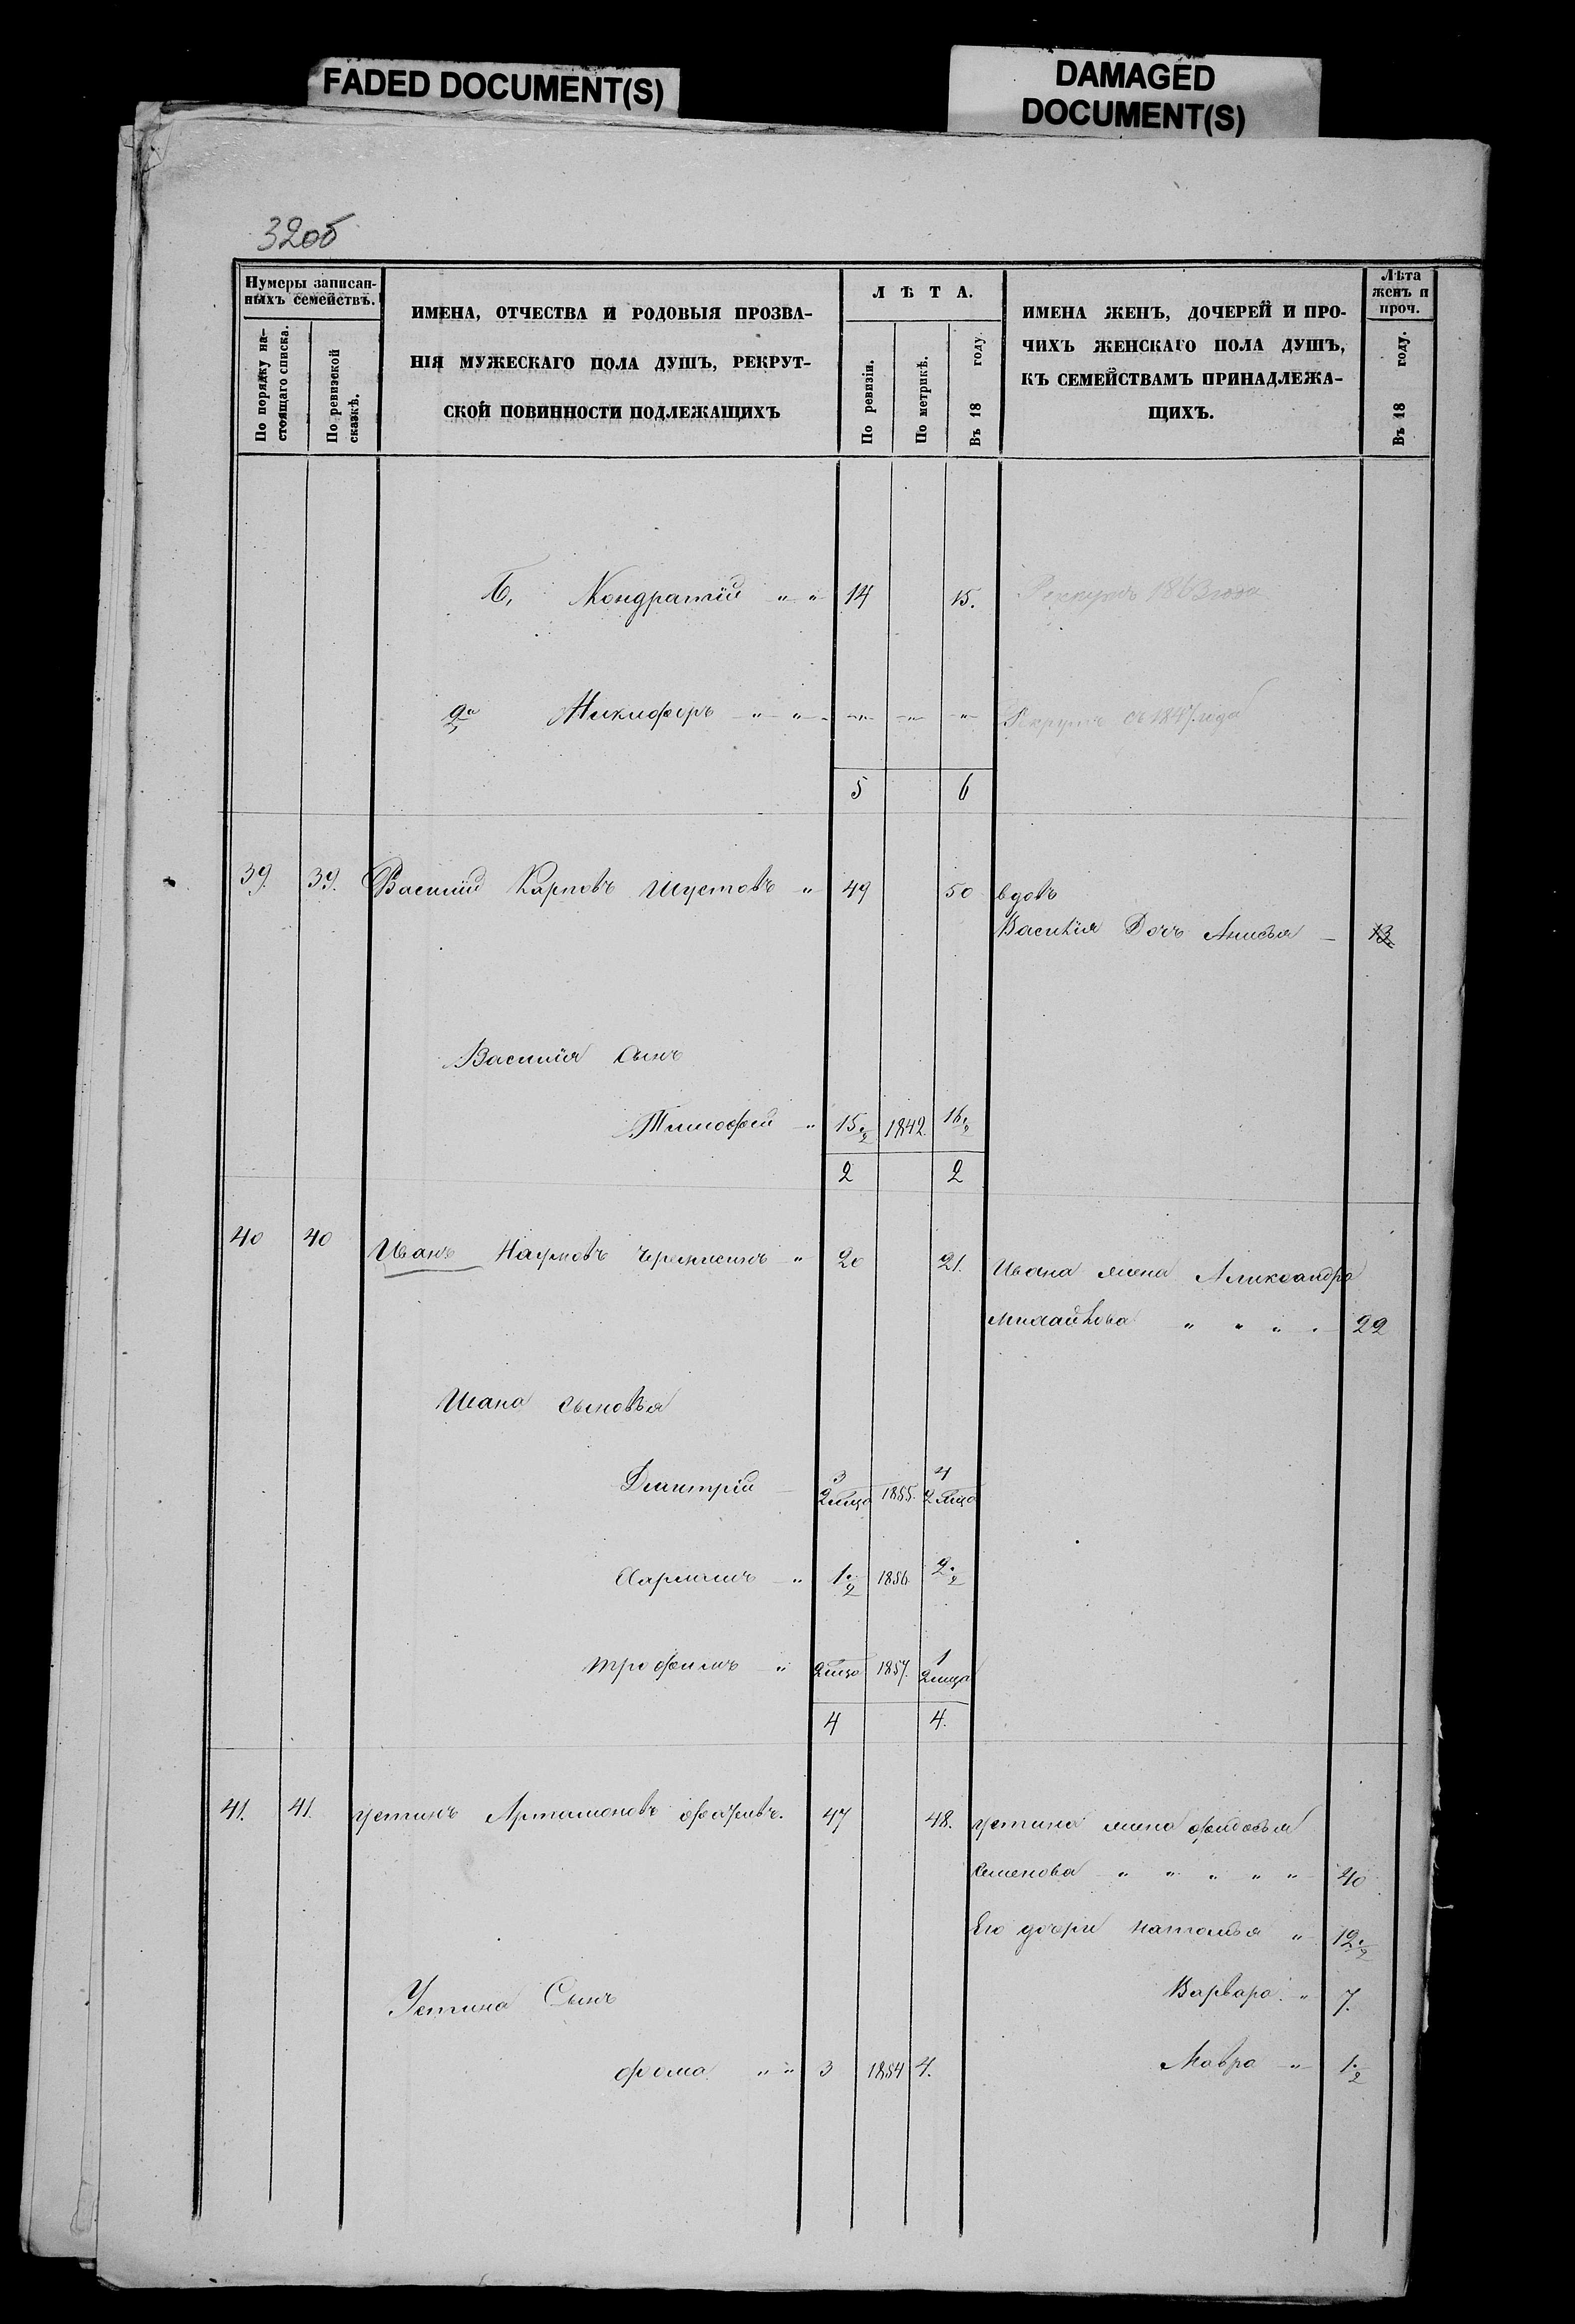 FADED DOCUMENT(S)
DAMAGED
DOCUMENT(S)
32об
Нумеры записан-
ныхъ семействъ.
По порядку на-
стоящаго списка.
По ревизской
сказкѣ.
ИМЕНА, ОТЧЕСТВА И РОДОВЫЯ ПРОЗВА-
НІЯ МУЖЕСКАГО ПОЛА ДУШЪ, РЕКРУТ-
СКОЙ ПОВИННОСТИ ПОДЛЕЖАЩИХЪ
ЛѢТА.
По ревизіи.
По метрикѣ.
Въ 18 году.
ИМЕНА ЖЕНЪ, ДОЧЕРЕЙ И ПРО-
ЧИХЪ ЖЕНСКАГО ПОЛА ДУШЪ,
КЪ СЕМЕЙСТВАМЪ ПРИНАДЛЕЖА-
ЩИХЪ.
Лѣта
женъ и
проч.
Въ 18 году.
Б, Кондратій " " 14 15. 1863 года
Никифоръ " " Рекрутъ съ 1847 года
5 6
39. 39. Василій Карповъ Шустовъ " 49 50 вдовъ
Василія Дочь Анисья 13
Василія Сынъ
Тимофей " 15 ½ 1842 16 ½
2 2
40 40 Иванъ Наумовъ " 20 21. Ивана жена Александра
Михайлова " " " " 22
Ивана сыновья
Дмитрій 3 2 мѣца 1855. 4 2 мѣца
1 ½ 1856 2 ½
Трофимъ " 2 мѣца 1857. 1 2 мѣца
4 4.
41. 41. Устинъ Артамоновъ 47 48. Устина жена Федосья
Семенова " " " " " 40
Его дочери Наталья " 12 ½
Варвара " 7.
Устина Сынъ
Фома " " 3 1854 4. Мавра " 1 ½